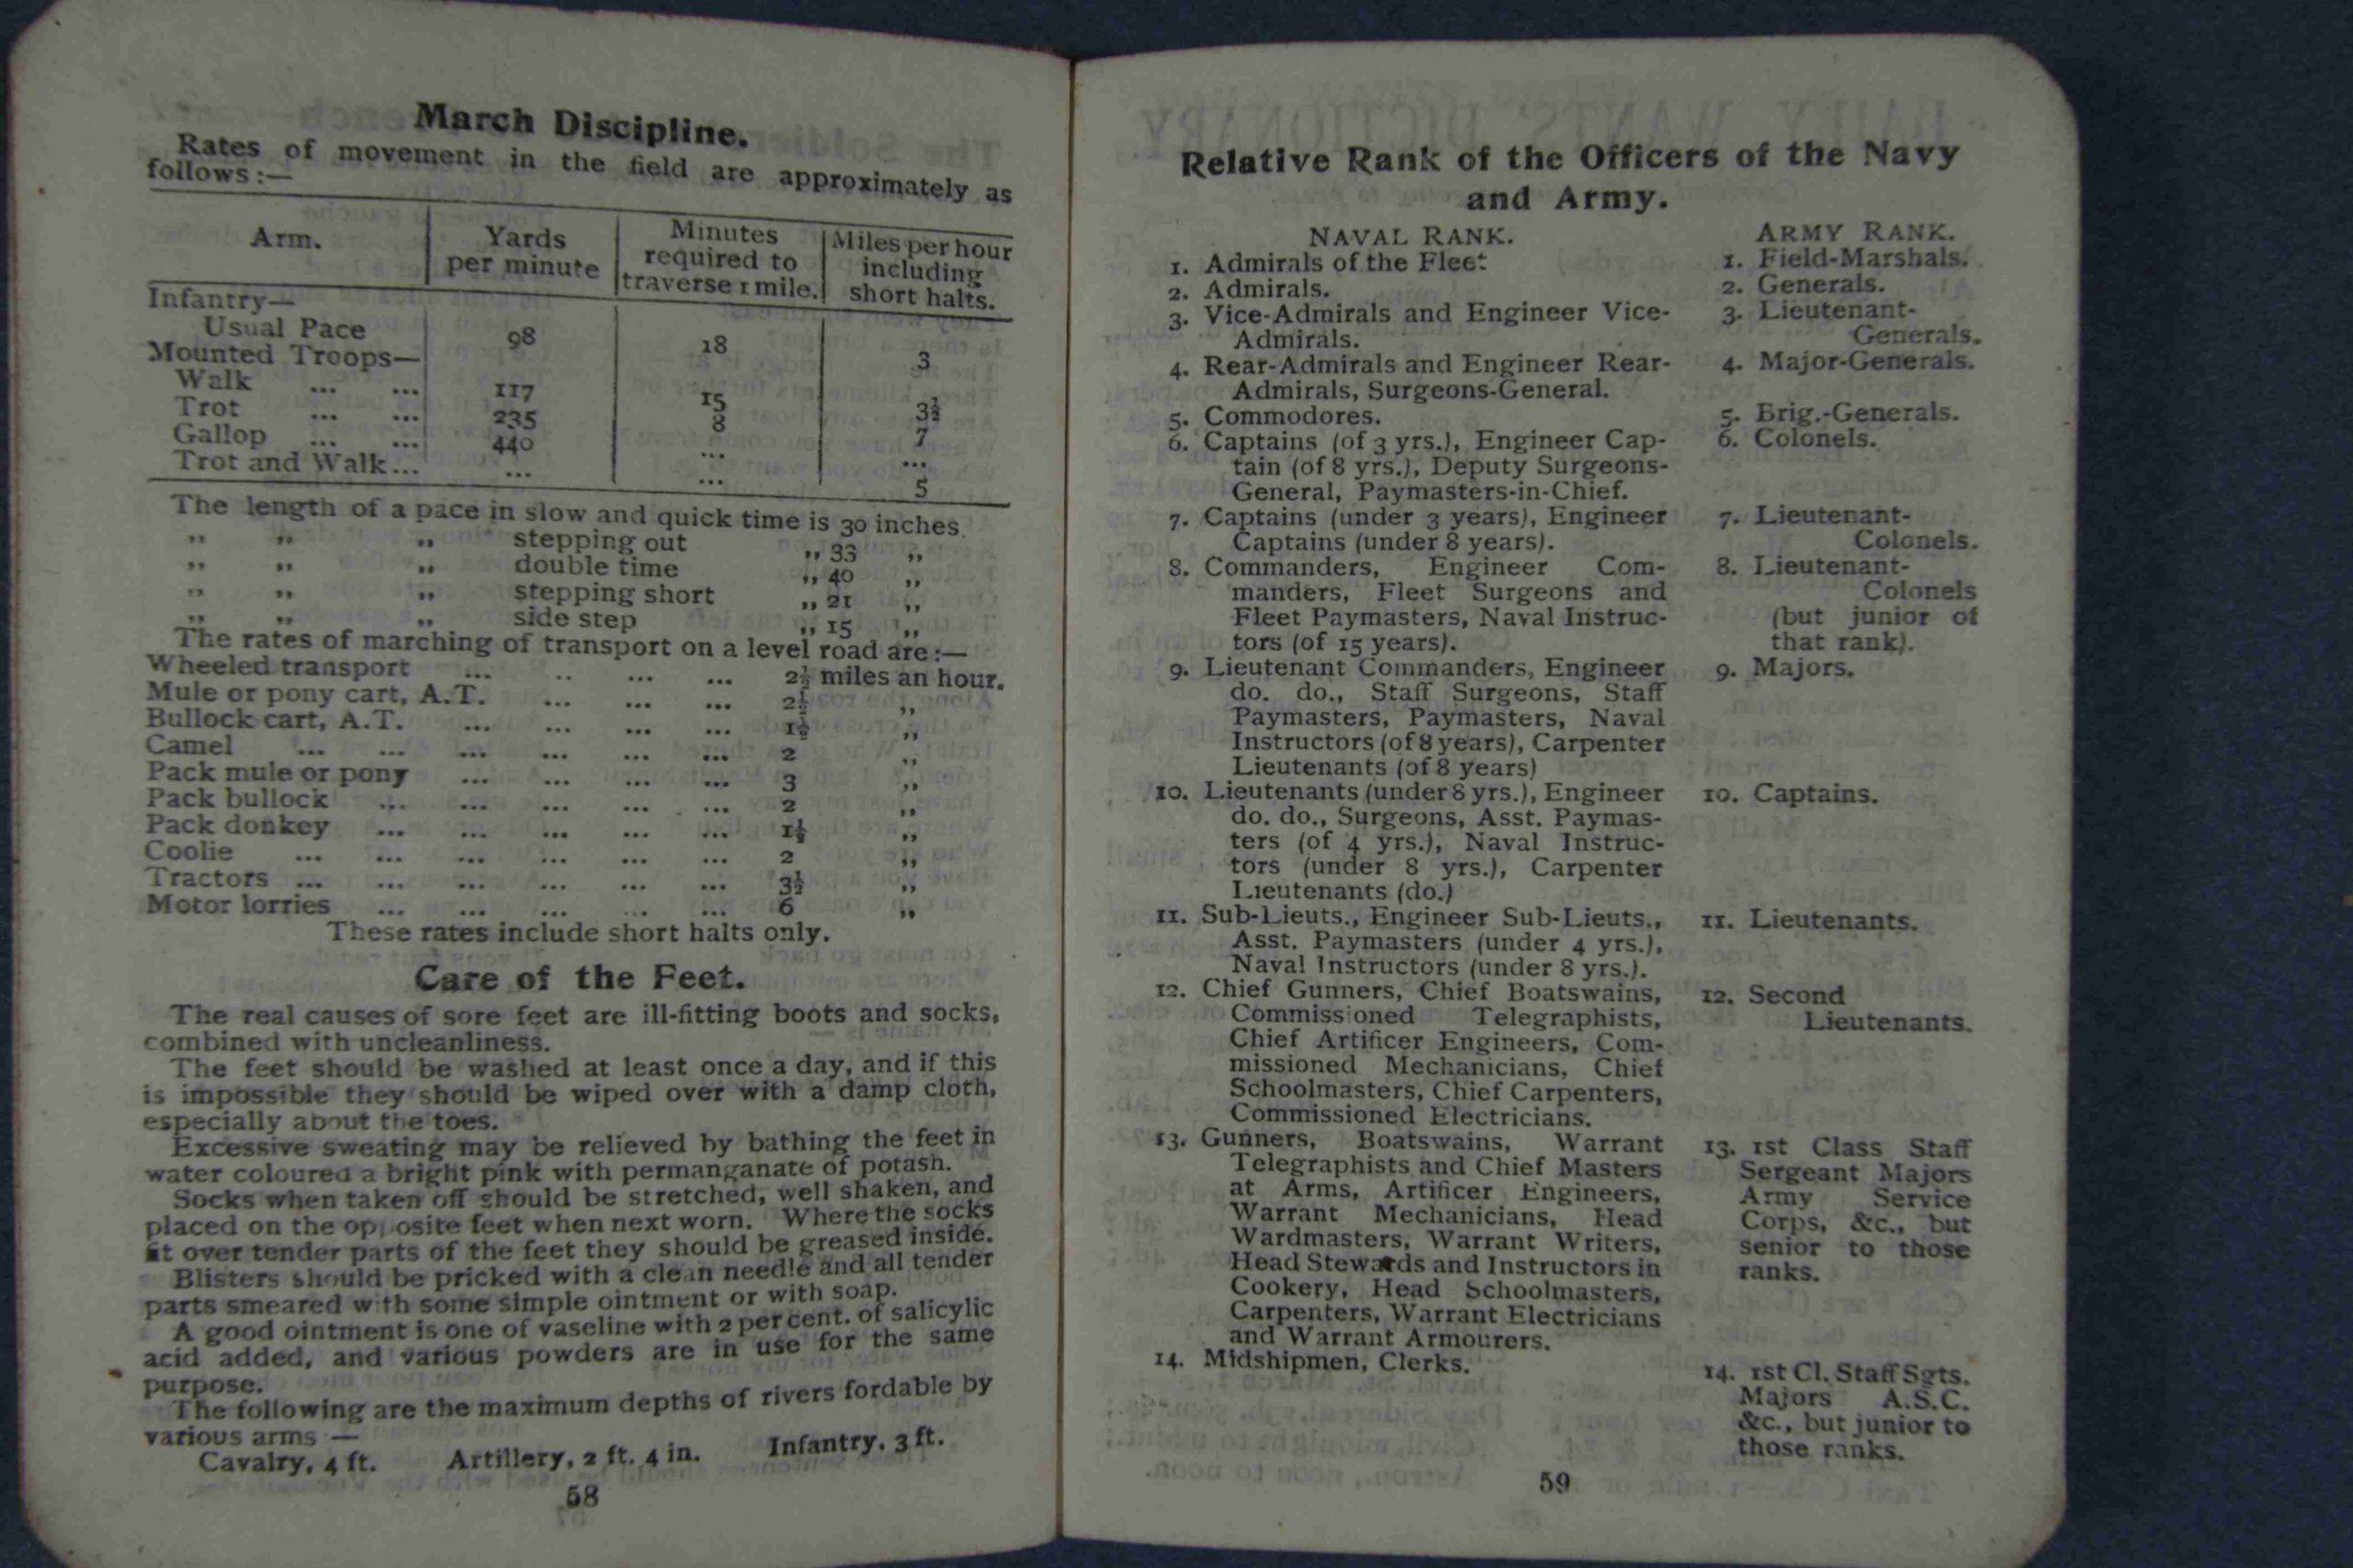 March Discipline.
Rates of movement in the field are approximately as
follows:—
Arm. Yards per minute Minutes required to traverse 1 mile. Miles per hour including short halts.
Infantry—
Usual Pace 98 18 3
Mounted Troops—
Walk ... ... 117 15 3½
Trot ... ... 235 8 7
Gallop ... ... 440 ... ...
Trot and Walk... ... ... 5
The length of a pace in slow and quick time is 30 inches.
„ „ „ stepping out „ 33 „
„ „ „ double time „ 40 „
„ „ „ stepping short „ 21 „
„ „ „ side step „ 15 „
The rates of marching of transport on a level road are:—
Wheeled transport ... .. ... ... 2½ miles an hour.
Mule or pony cart, A.T. ... ... ... 2½ „
Bullock cart, A.T. ... ... ... ... 1½ „
Camel ... ... ... ... ... ... 2 „
Pack mule or pony ... ... ... ... 3 „
Pack bullock ... ... ... ... ... 2 „
Pack donkey ... ... ... ... ... 1½ „
Coolie ... ... ... ... ... ... 2 „
Tractors ... ... ... ... ... ... 3½ „
Motor lorries ... ... ... ... ... 6 „
These rates include short halts only.
Care of the Feet.
The real causes of sore feet are ill-fitting boots and socks,
combined with uncleanliness.
The feet should be washed at least once a day, and if this
is impossible they should be wiped over with a damp cloth,
especially about the toes.
Excessive sweating may be relieved by bathing the feet in
water coloured a bright pink with permanganate of potash.
Socks when taken off should be stretched, well shaken, and
placed on the opposite feet when next worn. Where the socks
fit over tender parts of the feet they should be greased inside.
Blisters should be pricked with a clean needle and all tender
parts smeared with some simple ointment or with soap.
A good ointment is one of vaseline with 2 per cent. of salicylic
acid added, and various powders are in use for the same
purpose.
The following are the maximum depths of rivers fordable by
various arms —
Cavalry, 4 ft. Artillery, 2 ft. 4 in. Infantry, 3 ft.
58
Relative Rank of the Officers of the Navy
and Army.
NAVAL RANK. ARMY RANK.
1. Admirals of the Fleet 1. Field-Marshals.
2. Admirals. 2. Generals.
3. Vice-Admirals and Engineer Vice- 3. Lieutenant-
Admirals. Generals.
4. Rear-Admirals and Engineer Rear- 4. Major-Generals.
Admirals, Surgeons-General.
5. Commodores. 5. Brig.-Generals.
6. Captains (of 3 yrs.), Engineer Cap- 6. Colonels.
tain (of 8 yrs.), Deputy Surgeons-
General, Paymasters-in-Chief.
7. Captains (under 3 years), Engineer 7. Lieutenant-
Captains (under 8 years). Colonels.
8. Commanders, Engineer Com- 8. Lieutenant-
manders, Fleet Surgeons and Colonels
Fleet Paymasters, Naval Instruc- (but junior of
tors (of 15 years). that rank).
9. Lieutenant Commanders, Engineer 9. Majors.
do. do., Staff Surgeons, Staff
Paymasters, Paymasters, Naval
Instructors (of 8 years), Carpenter
Lieutenants (of 8 years)
10. Lieutenants (under 8 yrs.), Engineer 10. Captains.
do. do., Surgeons, Asst. Paymas-
ters (of 4 yrs.), Naval Instruc-
tors (under 8 yrs.), Carpenter
Lieutenants (do.)
11. Sub-Lieuts., Engineer Sub-Lieuts., 11. Lieutenants.
Asst. Paymasters (under 4 yrs.),
Naval Instructors (under 8 yrs.).
12. Chief Gunners, Chief Boatswains, 12. Second
Commissioned Telegraphists, Lieutenants.
Chief Artificer Engineers, Com-
missioned Mechanicians, Chief
Schoolmasters, Chief Carpenters,
Commissioned Electricians.
13. Gunners, Boatswains, Warrant 13. 1st Class Staff
Telegraphists and Chief Masters Sergeant Majors
at Arms, Artificer Engineers, Army Service
Warrant Mechanicians, Head Corps, &c., but
Wardmasters, Warrant Writers, senior to those
Head Stewards and Instructors in ranks.
Cookery, Head Schoolmasters,
Carpenters, Warrant Electricians
and Warrant Armourers.
14. Midshipmen, Clerks. 14. 1st Cl. Staff Sgts.
Majors A.S.C.
&c., but junior to
those ranks.
59